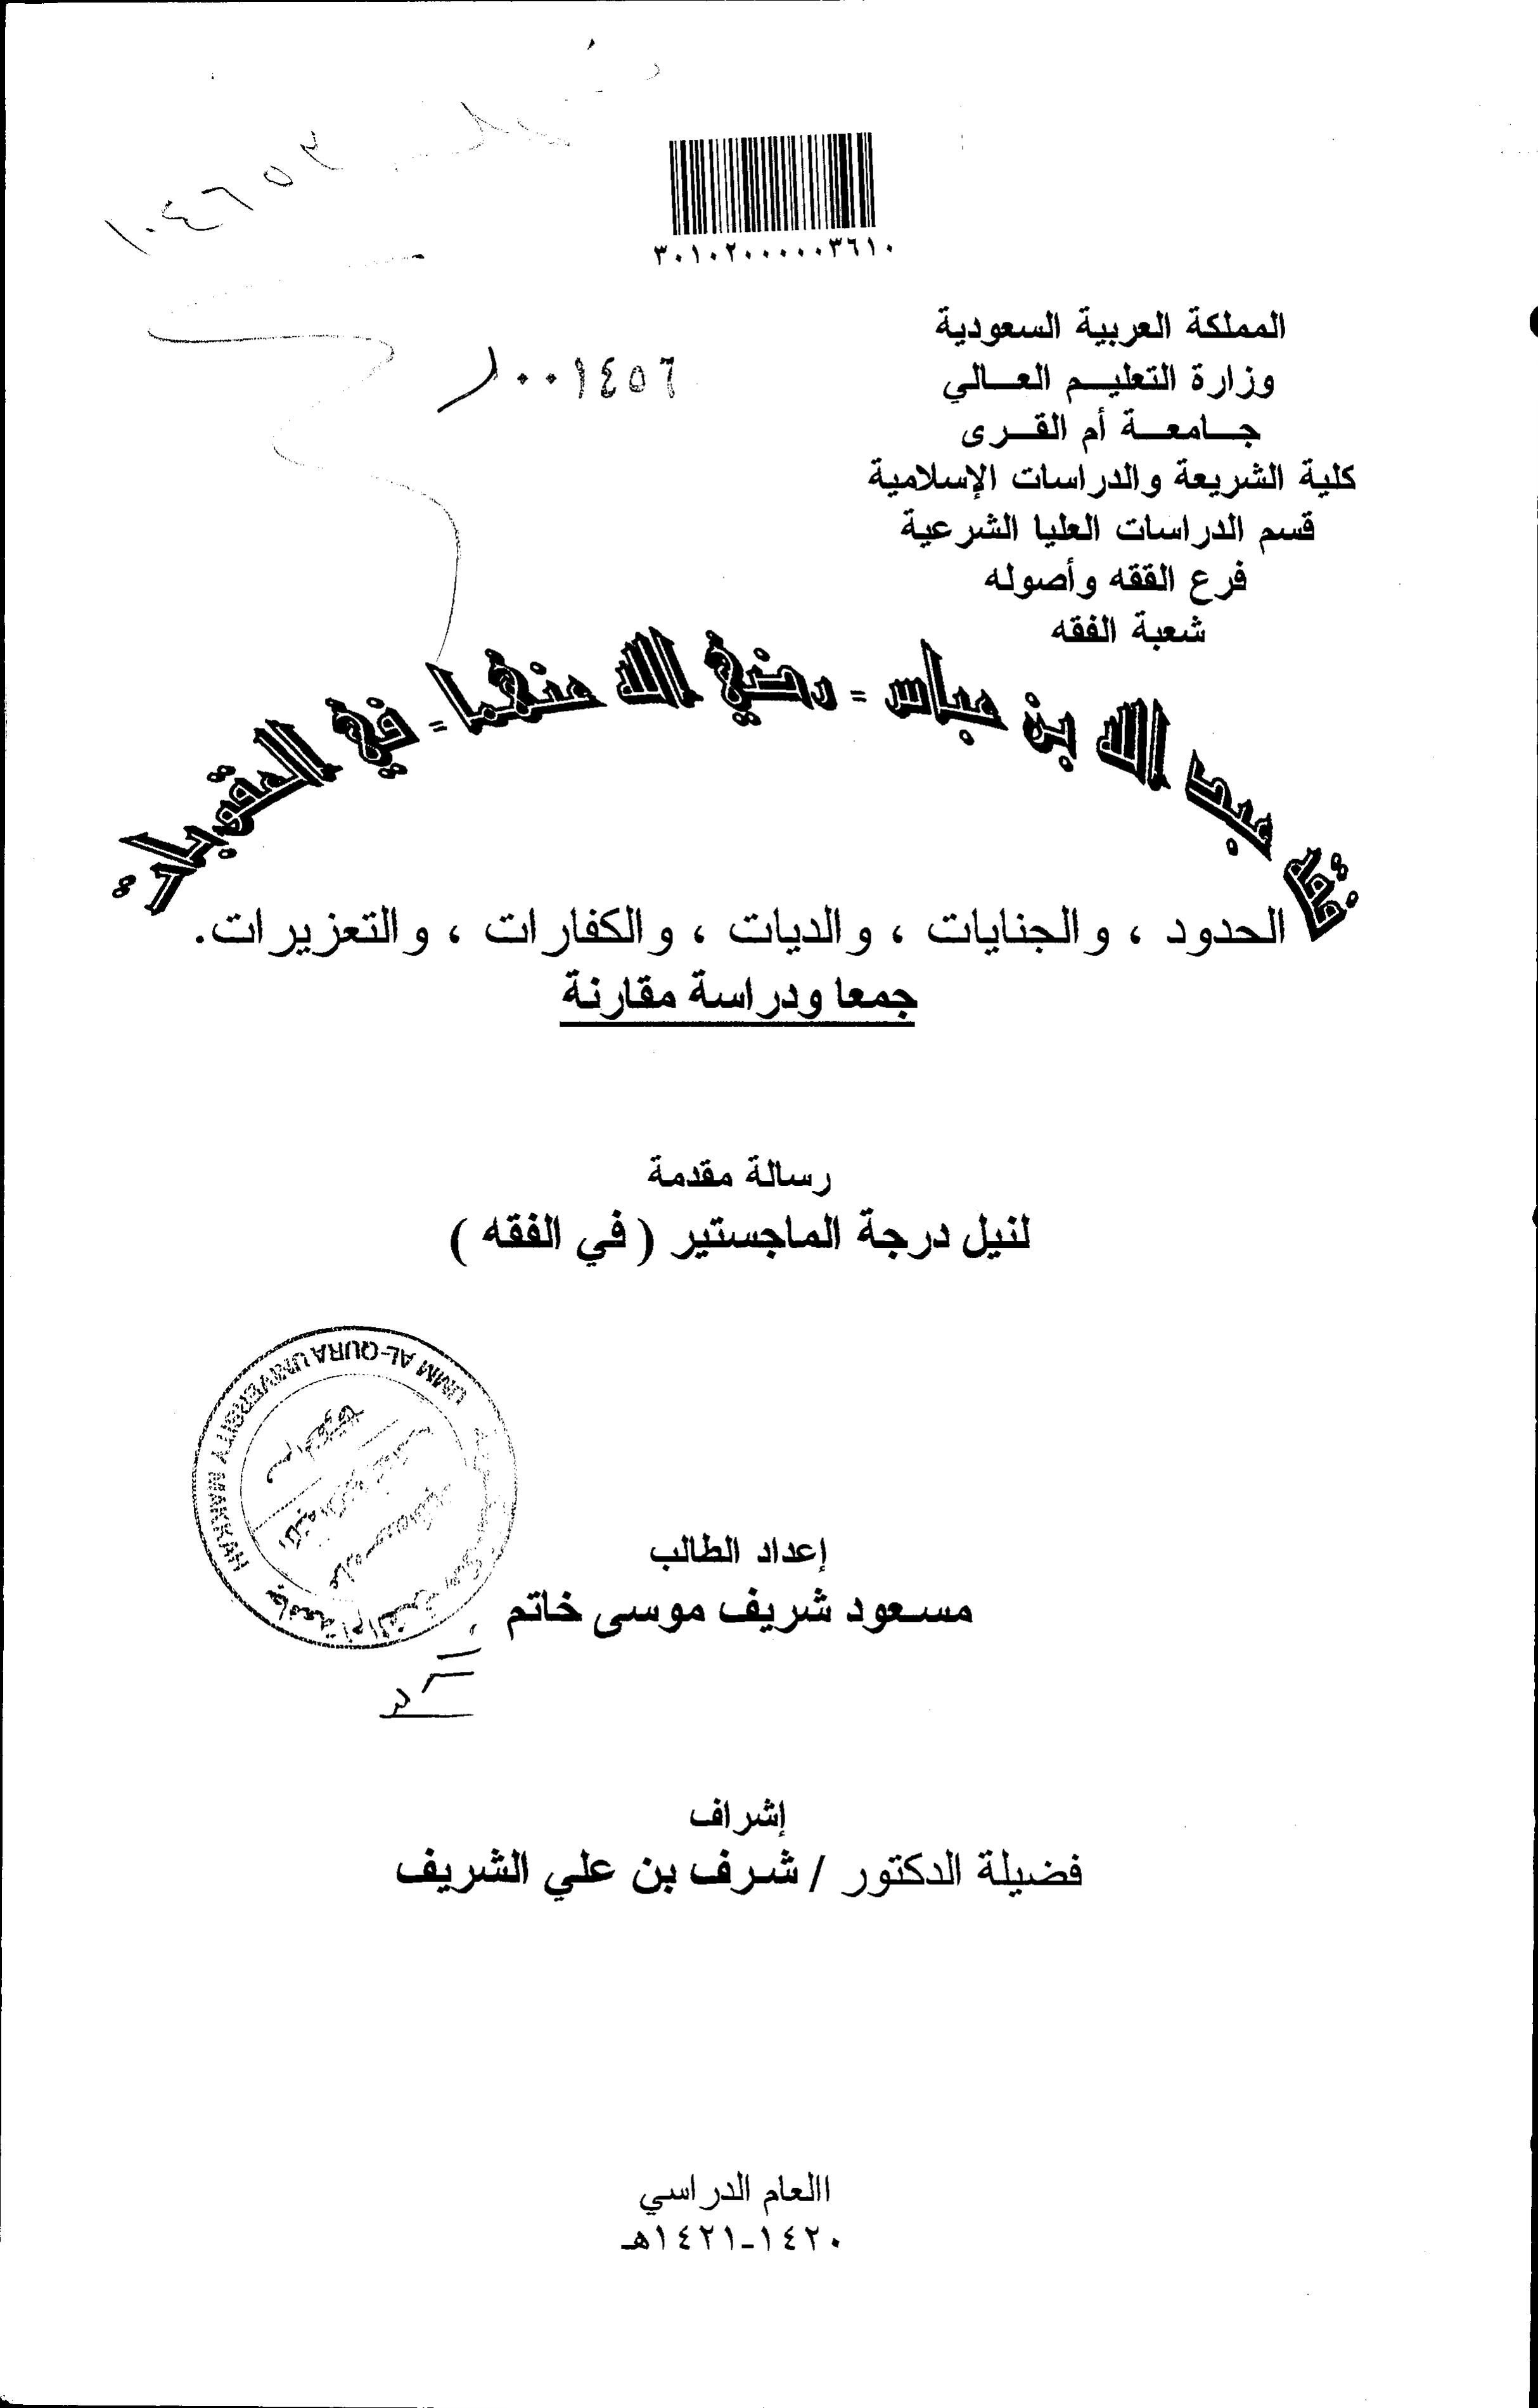 ١٠٤٦٥٣
٣٠١٠٢٠٠٠٠٠٣٦١٠
المملكة العربية السعودية
وزارة التعليم العالي
جامعة أم القرى
كلية الشريعة والدراسات الإسلامية
قسم الدراسات العليا الشرعية
فرع الفقه وأصوله
شعبة الفقه
٠٠١٤٥٦
فقه عبد الله بن عباس - رضي الله عنهما - في العقوبات:
الحدود ، والجنايات ، والديات ، والكفارات ، والتعزيرات.
جمعا ودراسة مقارنة
رسالة مقدمة
لنيل درجة الماجستير ( في الفقه )
UMM AL-QURA UNIVERSITY MAKKAH
إعداد الطالب
مسعود شريف موسى خاتم
إشراف
فضيلة الدكتور / شرف بن علي الشريف
االعام الدراسي
١٤٢٠-١٤٢١هـ